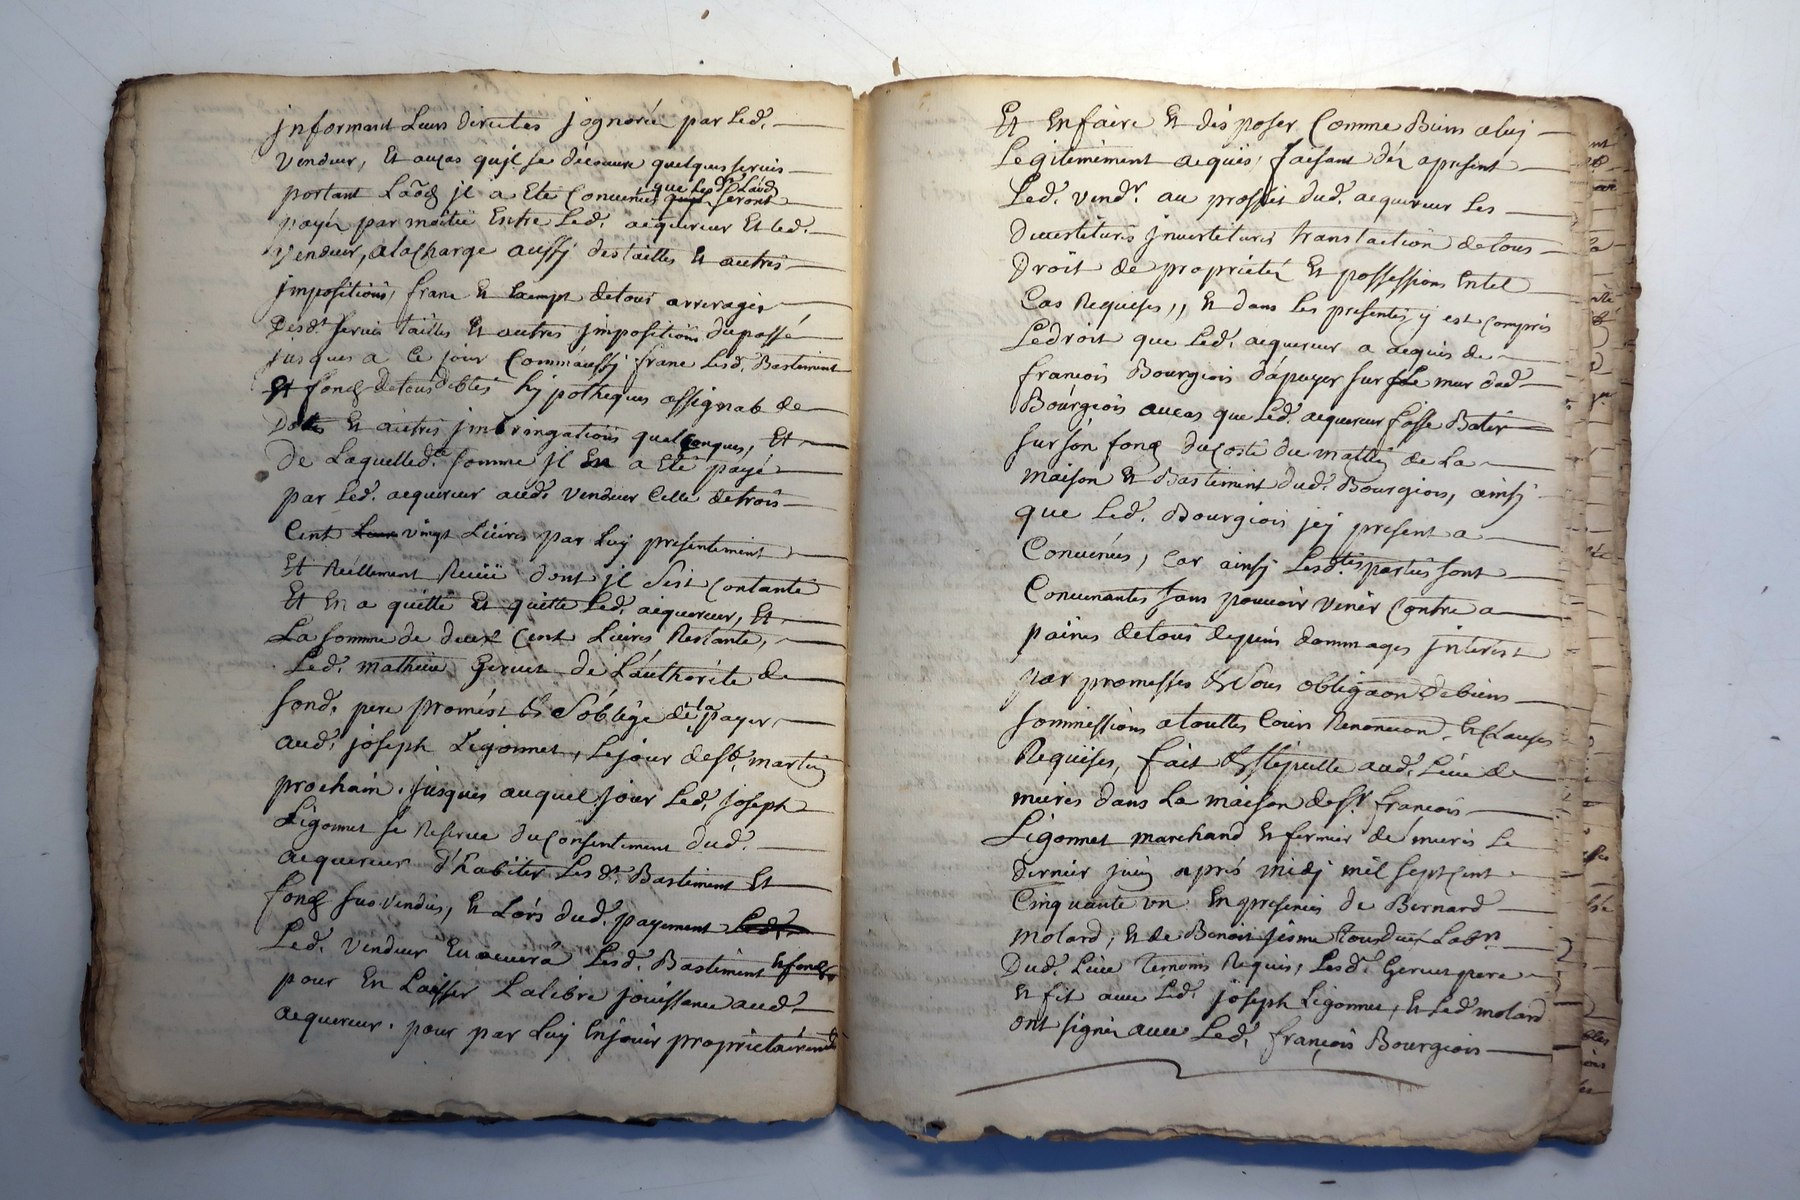 informant Leurs directes jgnorée par Led.
Vendeur, Et aucas qujl se decouure quelques servis
portant Laod jl a Eté Conuenûs que Lesd. Laod seront
payés par moitié Entre Led. acquereur Et led.
Vendeur, alacharge aussy destailles Et autres
jmpositions, franc Et Exempt detous arrerages
Desd. servis tailles Et autres jmpositions dupassé
jusques a Ce jour Comm'aussy franc Lesd. Bastiment
Et fond detous debtes hypotheques assignab de
Dottes Et autres jmbringations quelconques, Et
De Laquelled. somme jl En a Eté payé
par Led. acquereur aud. Vendeur Celle detrois
Cent vingt Liures par Luy presentement
Et Réellement Receu dont jl s'est contanté
Et En a quitté Et quitte Led. acquereur, Et
La somme de deux Cent Liures Restante,
Led. mathieu Gervet de L'authorité de
sond. pere promést Et s'oblige de la payer
aud. joseph Ligonnet, Lejour dest. martin
prochain, jusques auquel jour Led. joseph
Ligonnet se Reserue du Consentement dud.
acquereur d'habiter Lesd. Bastiment Et
fond sus vendus, Et Lors dud. payement
Led. Vendeur Euacuera Lesd. Bastiment Et fond
pour En Laisser La libre jouissance aud.
acquereur, pour par Luy Enjouir proprietairement
Et Enfaire Et disposer Comme Biens aluy
Legitemément acquis, faisant déz apresent
Led. vendr. au proffit dud. acquereur Les
Deuestitures jnuestitures translaction detous
Droit de proprietéz Et possessions Entel
Cas Requises,, Et dans Les presentes y est compris
Ledroit que Led. acquereur a acquis de
francois Bourgeois d'apuyer sur Le mur dud.
Bourgeois aucas que Led. acquereur fasse Batir
sur son fond ducoste du matin de La
maison Et Bastiment dud. Bourgeois, ainsy
que Led. Bourgeois jcy present a
Conuenûs, Car ainsy Lesd. parties sont
Conuenantes sans pouuoir venir Contre a
paines detous depens dommages jnterest
par promesses Et sous obligaon debiens
sommissions atouttes Cours Renonaon, Et Clauses
Requises, fait Et stipullé aud. Lieu de
mieres dans La maison desr. francois
Ligonnet marchand Et fermier de mieres Le
dernier juin aprés midy mil sept Cent
Cinquante un En presences de Bernard
molard, Et de Benoit Labrs.
Dud. Lieu temoins Requis, Lesd. Gervet pere
Et fils auec Led. joseph Ligonnet, Et Led. molard
ont signés auec Led. françois Bourgeois